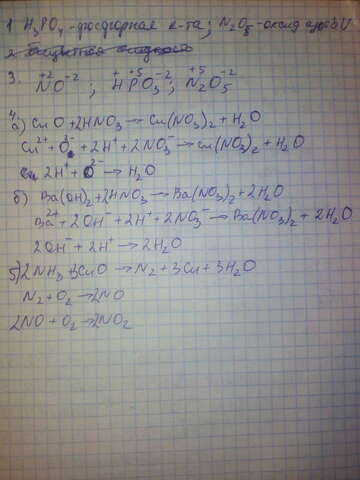 1. H₃PO₄ - фосфорная к-та; N₂O₅ - оксид азота V
3. N⁺²O⁻²; H⁺P⁺⁵O₃⁻²; N₂⁺⁵O₅⁻²
4.
а) CuO + 2HNO₃ → Cu(NO₃)₂ + H₂O
Cu²⁺ + O²⁻ + 2H⁺ + 2NO₃⁻ → Cu(NO₃)₂ + H₂O
2H⁺ + O²⁻ → H₂O
б) Ba(OH)₂ + 2HNO₃ → Ba(NO₃)₂ + 2H₂O
Ba²⁺ + 2OH⁻ + 2H⁺ + 2NO₃⁻ → Ba(NO₃)₂ + 2H₂O
2OH⁻ + 2H⁺ → 2H₂O
5) 2NH₃ + 3CuO → N₂ + 3Cu + 3H₂O
N₂ + O₂ → 2NO
2NO + O₂ → 2NO₂